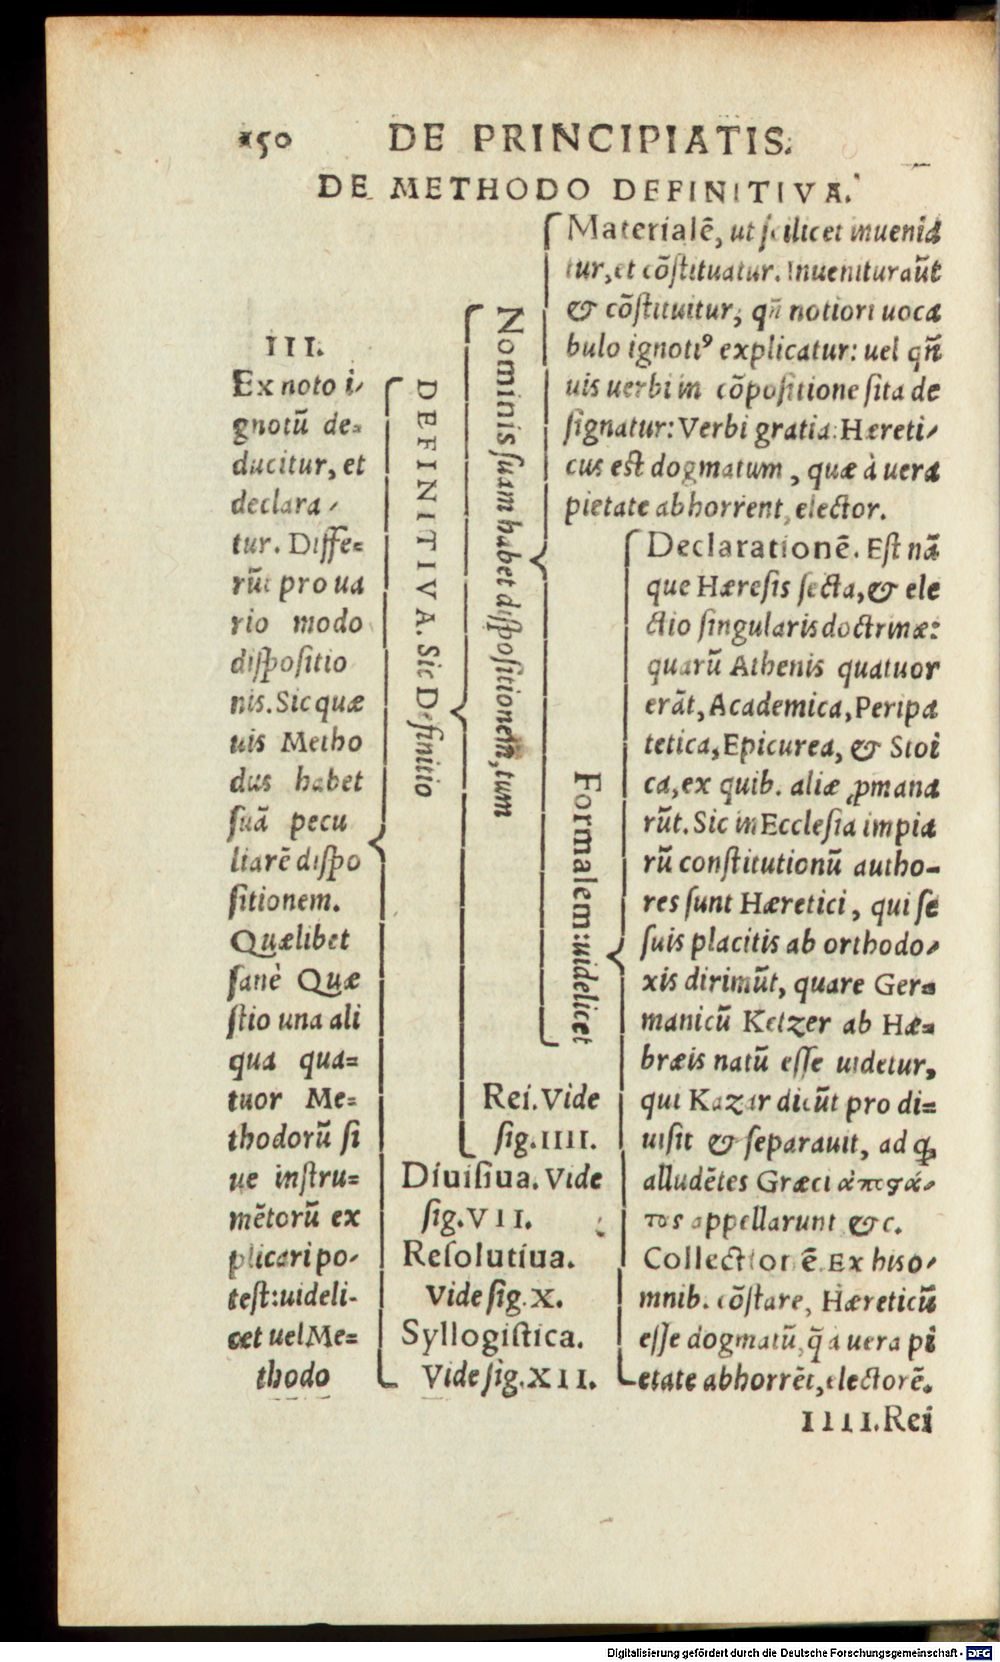 150 DE PRINCIPIATIS.
DE METHODO DEFINITIVA.
III.
Ex noto i-
gnotū de-
ducitur, et
declara-
tur. Diffe-
rūt pro ua
rio modo
dispositio
nis. Sic quæ
uis Metho
dus habet
suā pecu
liarē dispo
sitionem.
Quælibet
sanè Quæ
stio una ali
qua qua-
tuor Me-
thodorū si
ue instru-
mētorū ex
plicari po-
test: uideli-
cet uel Me-
thodo
DEFINITIVA. Sic Definitio
Nominis suam habet dispositionem, tum
Materialē, ut scilicet inueniā
tur, et cōstituatur. Inuenitur aūt
& cōstituitur, qñ notiori uoca
bulo ignoti⁹ explicatur: uel qñ
uis uerbi in cōpositione sita de
signatur: Verbi gratia: Hæreti-
cus est dogmatum, quæ à uera
pietate abhorrent, elector.
Formalem: uidelicet
Declarationē. Est nā
que Hæresis secta, & ele
ctio singularis doctrinæ:
quarū Athenis quatuor
erāt, Academica, Peripa
tetica, Epicurea, & Stoi
ca, ex quib. aliæ ꝓmana
rūt. Sic in Ecclesia impia
rū constitutionū autho-
res sunt Hæretici, qui se
suis placitis ab orthodo-
xis dirimūt, quare Ger-
manicū Ketzer ab Hæ-
bræis natū esse uidetur,
qui Kazar dicūt pro di-
uisit & separauit, ad q̃
alludētes Græci ἀποϛά-
τας appellarunt &c.
Collectionē. Ex his o-
mnib. cōstare, Hæreticū
esse dogmatū, q̃ à uera pi
etate abhorrēt, electorē.
Rei. Vide
sig. IIII.
Diuisiua. Vide
sig. VII.
Resolutiua.
Vide sig. X.
Syllogistica.
Vide sig. XII.
IIII. Rei
Digitalisierung gefördert durch die Deutsche Forschungsgemeinschaft - DFG